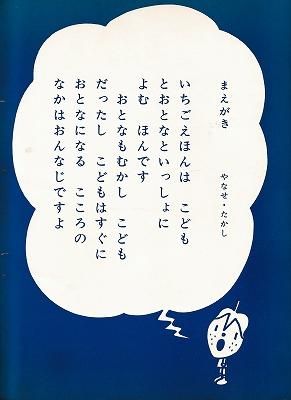 まえがき
やなせ・たかし
いちごえほんは　こども
とおとなといっしょに
よむ　ほんです
おとなもむかし　こども
だったし　こどもはすぐに
おとなになる　こころの
なかはおんなじですよ